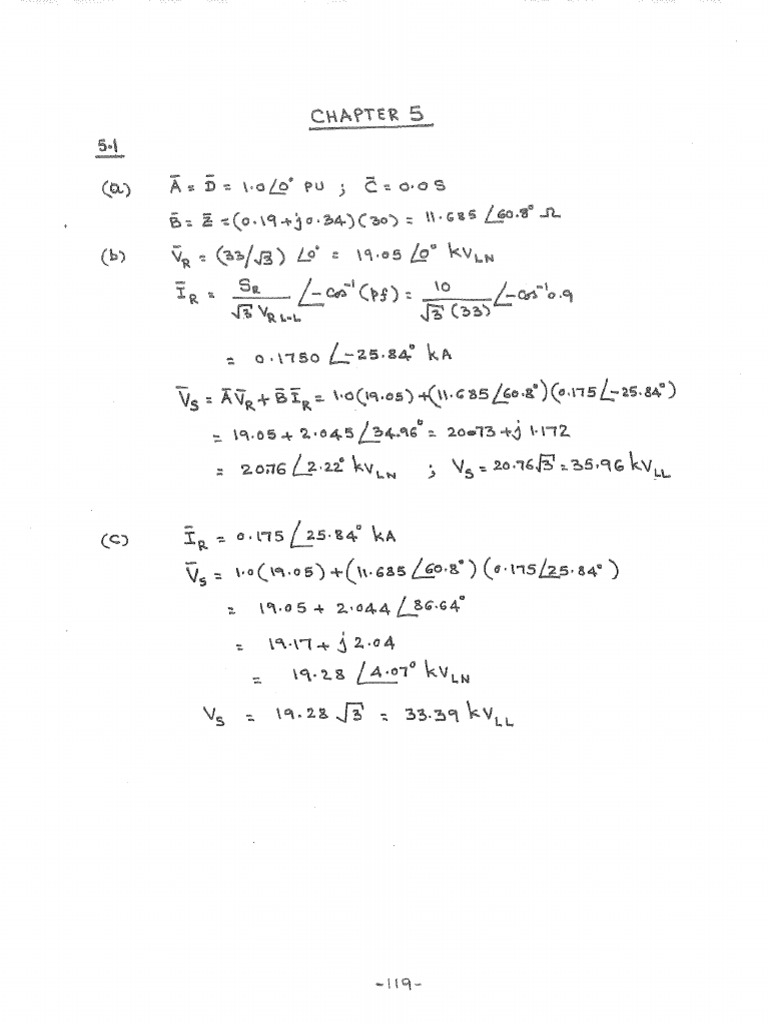 CHAPTER 5
5.1
(a) Ā = D̄ = 1.0∠0° PU ; C̄ = 0.0 S
B̄ = Z̄ = (0.19+j0.34)(30) = 11.685 ∠60.8° Ω
(b) V̄R = (33/√3) ∠0° = 19.05 ∠0° kVLN
ĪR = SR / √3 VR L-L ∠-cos⁻¹(pf) = 10 / √3 (33) ∠-cos⁻¹0.9
= 0.1750 ∠-25.84° kA
V̄S = ĀV̄R + B̄ĪR = 1.0(19.05)+(11.685∠60.8°)(0.175∠-25.84°)
= 19.05 + 2.045∠34.96° = 20.73 + j 1.172
= 20.76 ∠2.22° kVLN ; VS = 20.76√3 = 35.96 kVLL
(C) ĪR = 0.175 ∠25.84° kA
V̄S = 1.0(19.05)+(11.685∠60.8°)(0.175∠25.84°)
= 19.05 + 2.044∠86.64°
= 19.17 + j 2.04
= 19.28 ∠4.07° kVLN
VS = 19.28 √3 = 33.39 kVLL
-119-